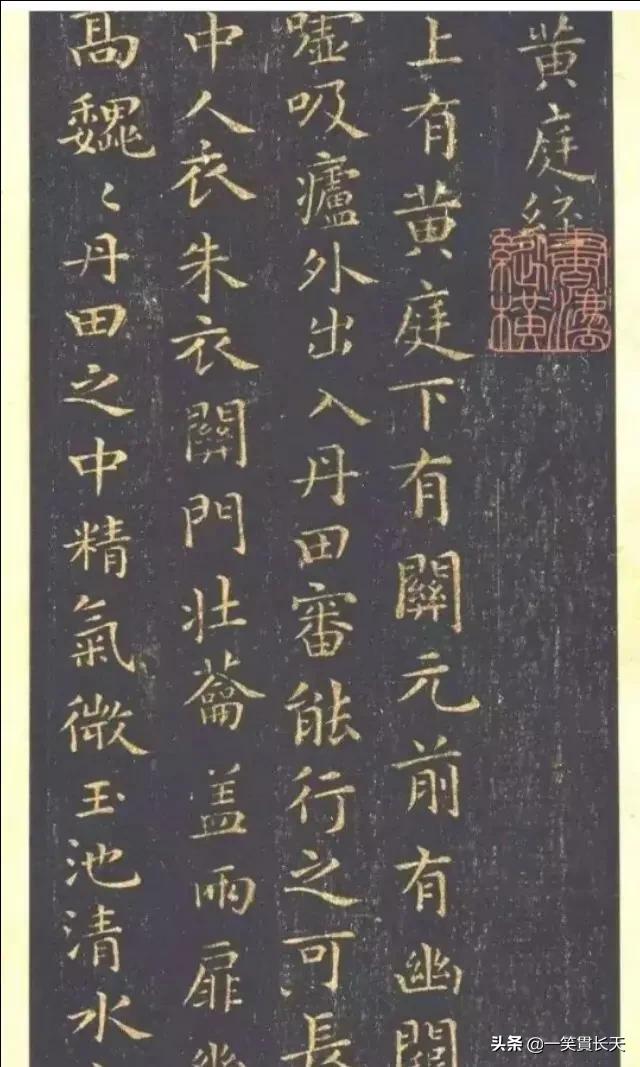 黄庭經
上有黄庭下有關元前有幽關
嘘吸廬外出入丹田審能行之可長
中人衣朱衣關門壯蘥盖兩扉幽
高巍〻丹田之中精氣微玉池清水
頭条 @一笑貫长天